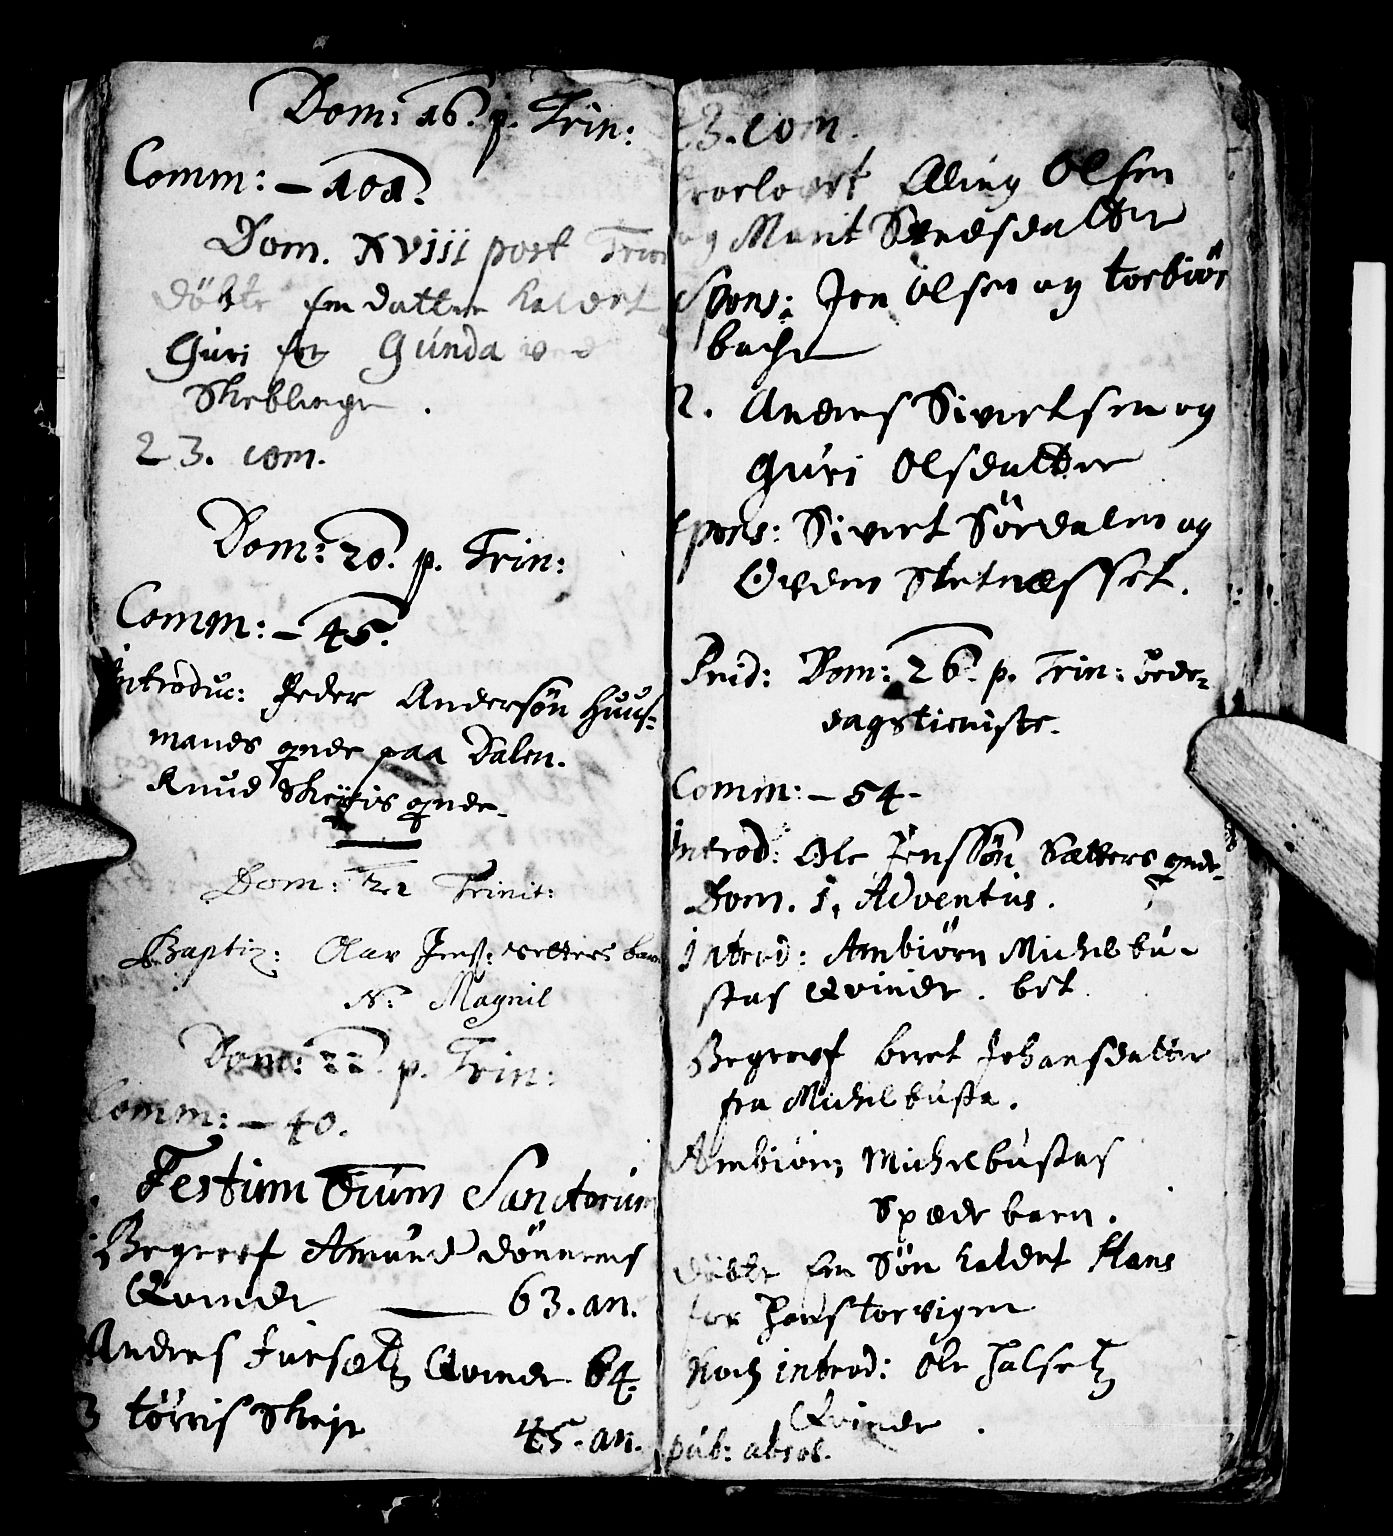 Dom: 16. p. Trin:
Comm: – 101.
Dom. XVIII post Trin
döbte en datter kaldet
Guri for Gunda
Skeblinge.
23. com.
Dom: 20. p. Trin:
Comm: – 45.
Introduc: Peder Andersøn Huus-
mands qvnde paa Dalen.
Knud Skeyis qvnde.
Dom: 21 Trinit:
Baptiz: Olav Jenss: setters barn
N: Magnil
Dom: 22. p. Trin:
Comm: – 40.
Festum Oium Sanctorum
Begreef Amund dönnems
Qvinde 63. an.
Andres Fürsætz Qvinde 64.
3 törris Skeje 45. an.
23. com.
troeloert Elling Olsen
og Marit Svedsdatter
Spons: Jon Olsen og torbiör
bache
2. Andres Sivertsen og
Guri Olsdatter
spons: Sivert Sördalen og
Evden Stetnæsset.
Prid: Dom: 26. p. Trin: bede-
dagstieniste.
Comm: – 54 –
Introd: Ole Jenssøn Sætters qvnde.
Dom. 1. Adventus.
Introd: Ambiörn Michelbu-
stas Qvinde. bet
Begreef beret Johansdatter
fra Michelbusta.
Ambiörn Michelbustas
Spæde barn.
döbte en Sön kaldet Hans
for Hans torvigen
Noch introd: Ole halsetz
Qvinde.
pub: absol.